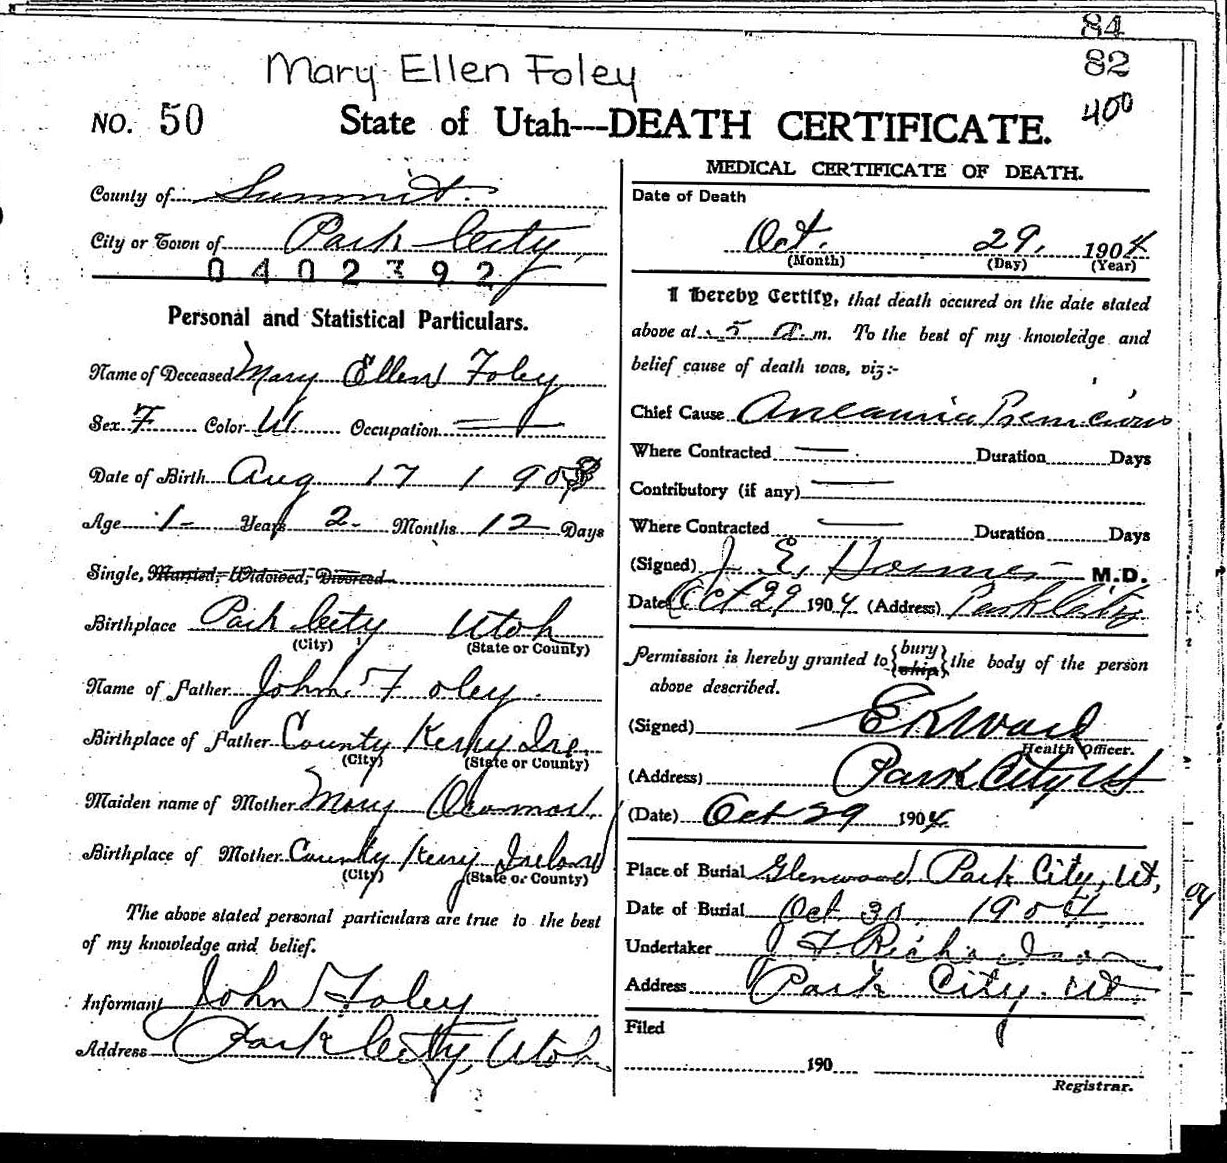 84
82
400
Mary Ellen Foley
NO. 50
State of Utah---DEATH CERTIFICATE.
County of Summit.
City or Town of Park City
0402392
Personal and Statistical Particulars.
Name of Deceased Mary Ellen Foley
Sex F Color W. Occupation —
Date of Birth Aug 17 1903
Age 1 Years 2 Months 12 Days
Single, Married, Widowed, Divorced
Birthplace Park City Utah
(City) (State or County)
Name of Father John Foley
Birthplace of Father County Kerry Ire.
(City) (State or County)
Maiden name of Mother Mary
Birthplace of Mother County Kerry Ireland
(City) (State or County)
The above stated personal particulars are true to the best
of my knowledge and belief.
Informant John Foley
Address Park City, Utah
MEDICAL CERTIFICATE OF DEATH.
Date of Death
Oct. 29, 1904
(Month) (Day) (Year)
I hereby Certify, that death occured on the date stated
above at 5 a.m. To the best of my knowledge and
belief cause of death was, viz:-
Chief Cause
Where Contracted — Duration Days
Contributory (if any) —
Where Contracted — Duration Days
(Signed) J. E. M.D.
Date Oct 29 1904 (Address) Park City
Permission is hereby granted to {bury ship} the body of the person
above described.
(Signed) E K Ward
Health Officer.
(Address) Park City Ut
(Date) Oct 29 1904
Place of Burial Glenwood Park City, Ut,
Date of Burial Oct 30, 1904
Undertaker J F Richardson
Address Park City. Ut.
Filed
190
Registrar.
04